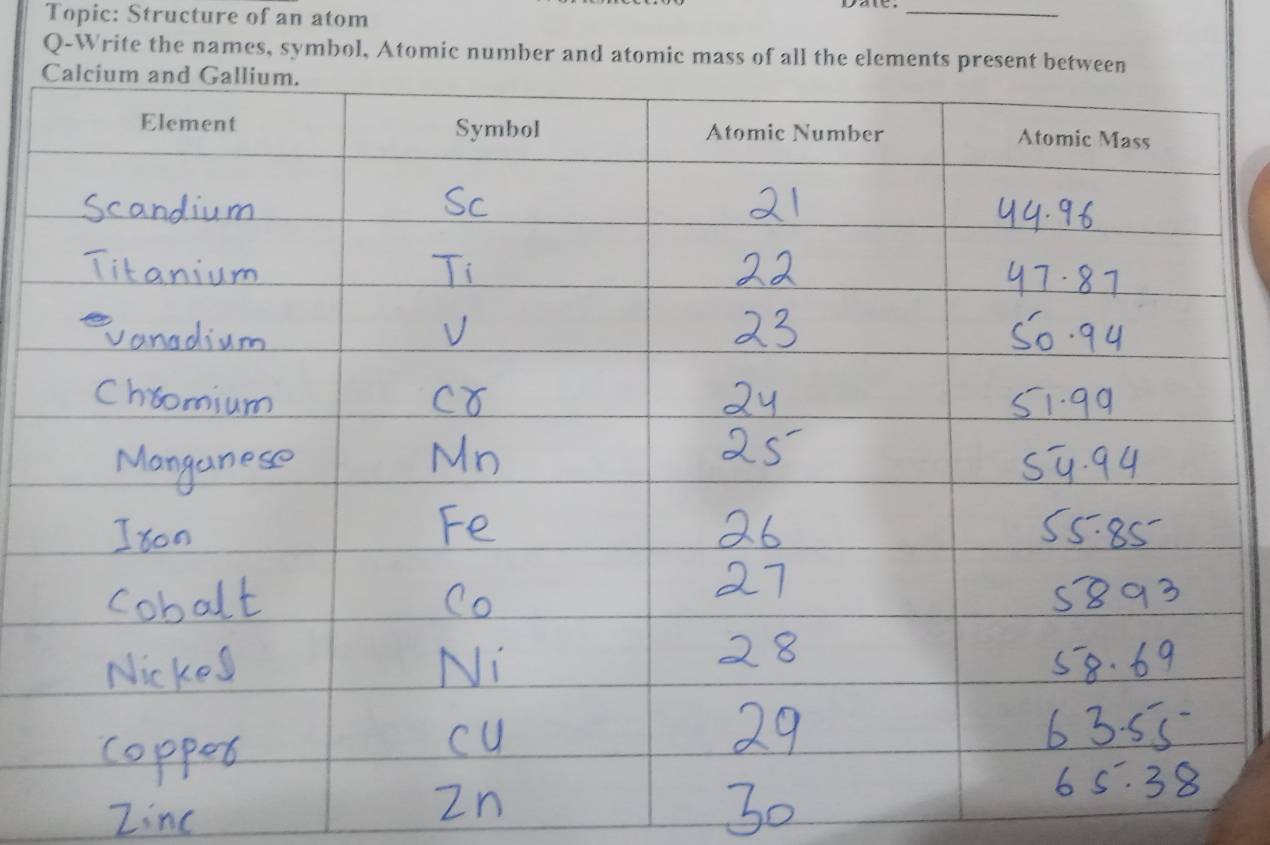 Topic: Structure of an atom
Q-Write the names, symbol, Atomic number and atomic mass of all the elements present between
Calcium and Gallium.
Element Symbol Atomic Number Atomic Mass
Scandium Sc 21 44.96
Titanium Ti 22 47.87
vanadium V 23 50.94
Chromium Cr 24 51.99
Manganese Mn 25 54.94
Iron Fe 26 55.85
Cobalt Co 27 58 93
Nickel Ni 28 58.69
Copper Cu 29 63.55
Zinc Zn 30 65.38